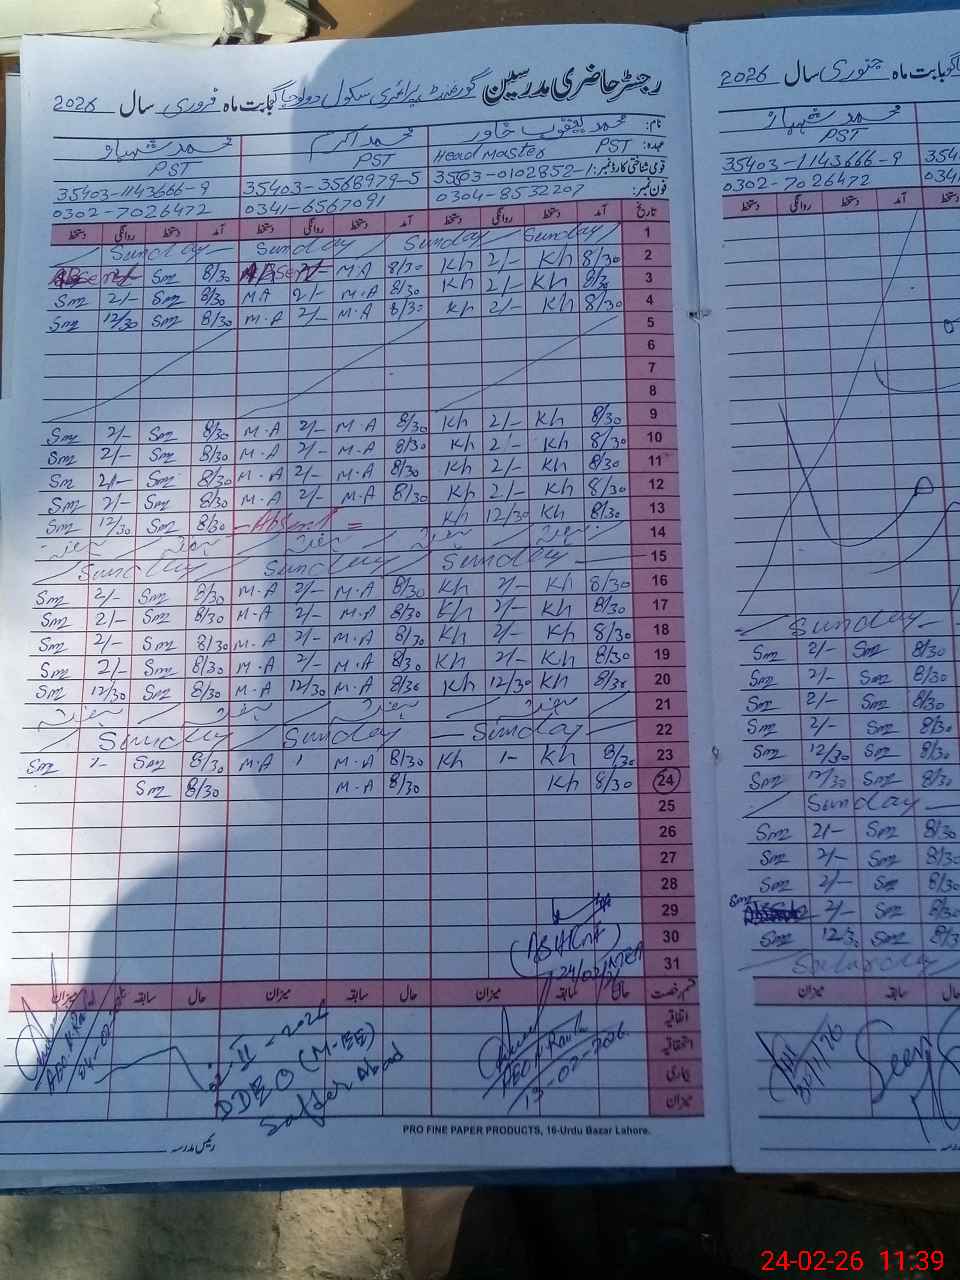 رجسٹر حاضری مدرسین گورنمنٹ پرائمری سکول بابت ماہ فروری سال 2026
نام: محمد یعقوب خاور محمد اکرم محمد شہباز
عہدہ: PST Head Master PST PST
قومی شناختی کارڈ نمبر: 35403-3568979-5 35403-1143666-9
فون نمبر: 0304-8532207 0341-6567091 0302-7026472
تاریخ آمد دستخط روانگی دستخط آمد دستخط روانگی دستخط آمد دستخط روانگی دستخط
1 Sunday Sunday Sunday Sunday
2 8/30 Kh 2/- Kh 8/30 M.A Absent 8/30 Sm Absent
3 8/30 Kh 2/- Kh 8/30 M.A 2/- M.A 8/30 Sm 2/- Sm
4 8/30 Kh 2/- Kh 8/30 M.A 2/- M.A 8/30 Sm 12/30 Sm
5
6
7
8
9 8/30 Kh 2/- Kh 8/30 M.A 2/- M.A 8/30 Sm 2/- Sm
10 8/30 Kh 2/- Kh 8/30 M.A 2/- M.A 8/30 Sm 2/- Sm
11 8/30 Kh 2/- Kh 8/30 M.A 2/- M.A 8/30 Sm 2/- Sm
12 8/30 Kh 2/- Kh 8/30 M.A 2/- M.A 8/30 Sm 2/- Sm
13 8/30 Kh 12/30 Kh - Absent = 8/30 Sm 12/30 Sm
14 ہفتہ ہفتہ ہفتہ ہفتہ ہفتہ
15 Sunday Sunday Sunday
16 8/30 Kh 2/- Kh 8/30 M.A 2/- M.A 8/30 Sm 2/- Sm
17 8/30 Kh 2/- Kh 8/30 M.A 2/- M.A 8/30 Sm 2/- Sm
18 8/30 Kh 2/- Kh 8/30 M.A 2/- M.A 8/30 Sm 2/- Sm
19 8/30 Kh 2/- Kh 8/30 M.A 2/- M.A 8/30 Sm 2/- Sm
20 8/30 Kh 12/30 Kh 8/30 M.A 12/30 M.A 8/30 Sm 12/30 Sm
21 ہفتہ ہفتہ ہفتہ ہفتہ
22 Sunday Sunday Sunday
23 8/30 Kh 1- Kh 8/30 M.A 1 M.A 8/30 Sm 1- Sm
24 8/30 Kh 8/30 M.A 8/30 Sm
25
26
27
28
29
30
31
24/02/26 MEA
قسم رخصت حال سابقہ میزان حال سابقہ میزان حال سابقہ میزان
اتفاقیہ
استحقاقیہ
بیماری
میزان
13-02-2026
DDEO (M-EE)
PRO FINE PAPER PRODUCTS, 16-Urdu Bazar Lahore.
رئیس مدرسہ
بابت ماہ جنوری سال 2026
محمد شہباز
PST
35403-1143666-9
0302-7026472
آمد دستخط روانگی دستخط
Sunday
8/30 Sm 2/- Sm
8/30 Sm 2/- Sm
8/30 Sm 2/- Sm
8/30 Sm 2/- Sm
8/30 Sm 12/30 Sm
8/30 Sm 12/30 Sm
Sunday
8/30 Sm 2/- Sm
8/30 Sm 2/- Sm
8/30 Sm 2/- Sm
8/30 Sm 2/- Sm
8/3 Sm 12/3 Sm
حال سابقہ میزان
Seen
24-02-26 11:39